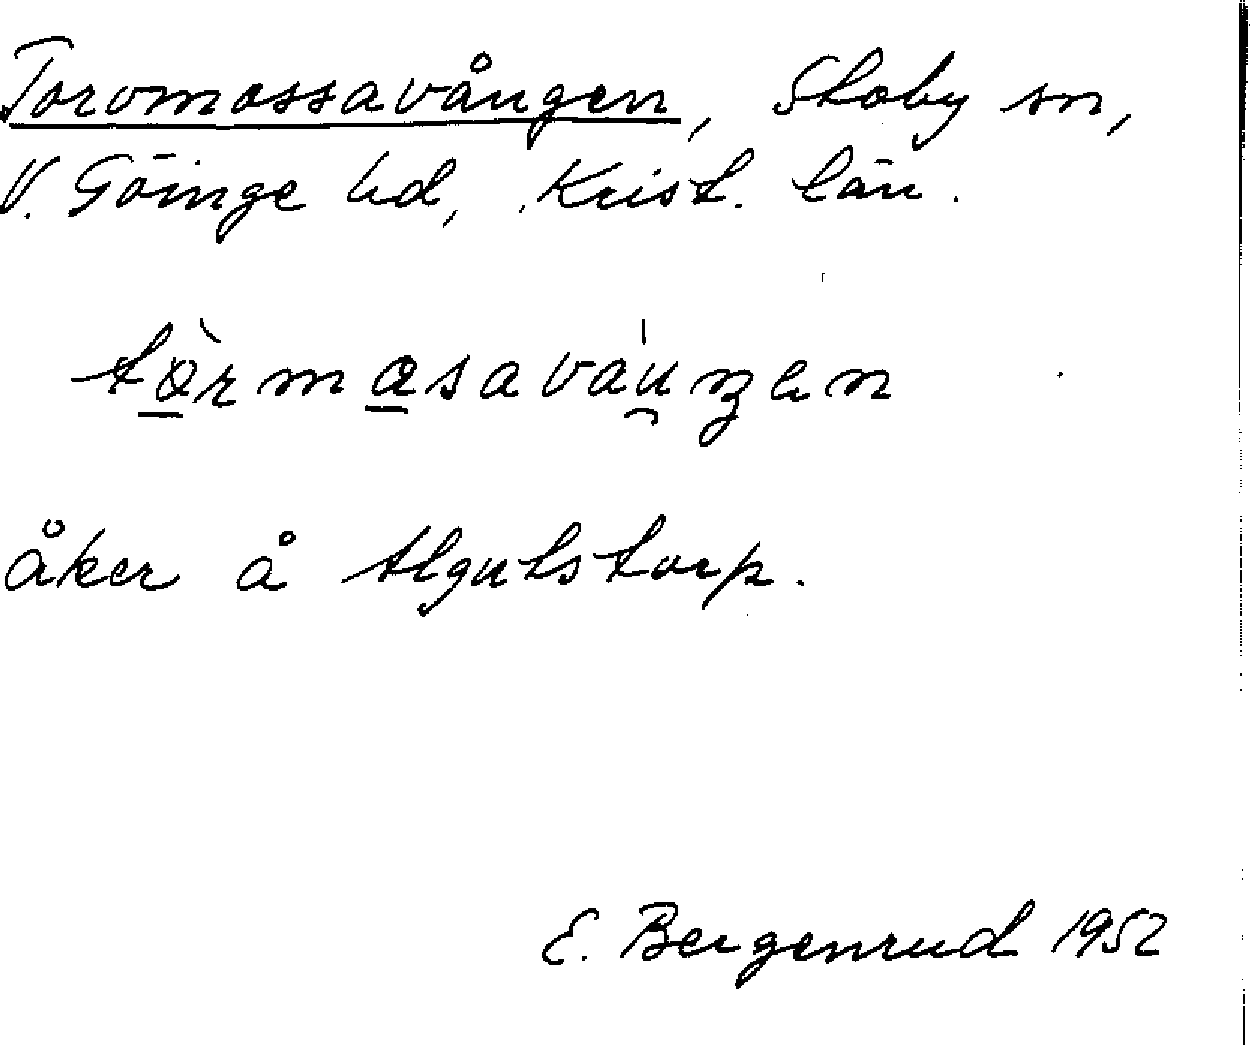 Torvmossavången, Stoby sn,
V. Göinge hd, Krist. län.
tọ̀rmọsavau̯ngen
åker å Algutstorp.
E. Bergenrud 1952